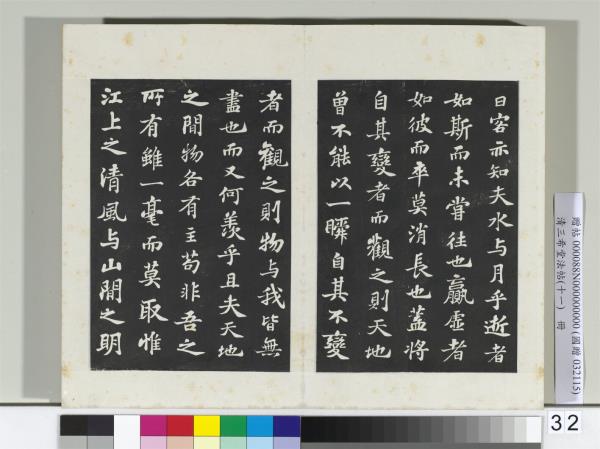 曰客亦知夫水与月乎逝者
如斯而未嘗往也贏虛者
如彼而卒莫消長也蓋將
自其變者而觀之則天地
曾不能以一瞬自其不變
者而觀之則物与我皆無
盡也而又何羨乎且夫天地
之間物各有主苟非吾之
所有雖一毫而莫取惟
江上之清風与山間之明
贈帖 000088N000000000 (國贈 032115)
清三希堂法帖(十一) 冊
32